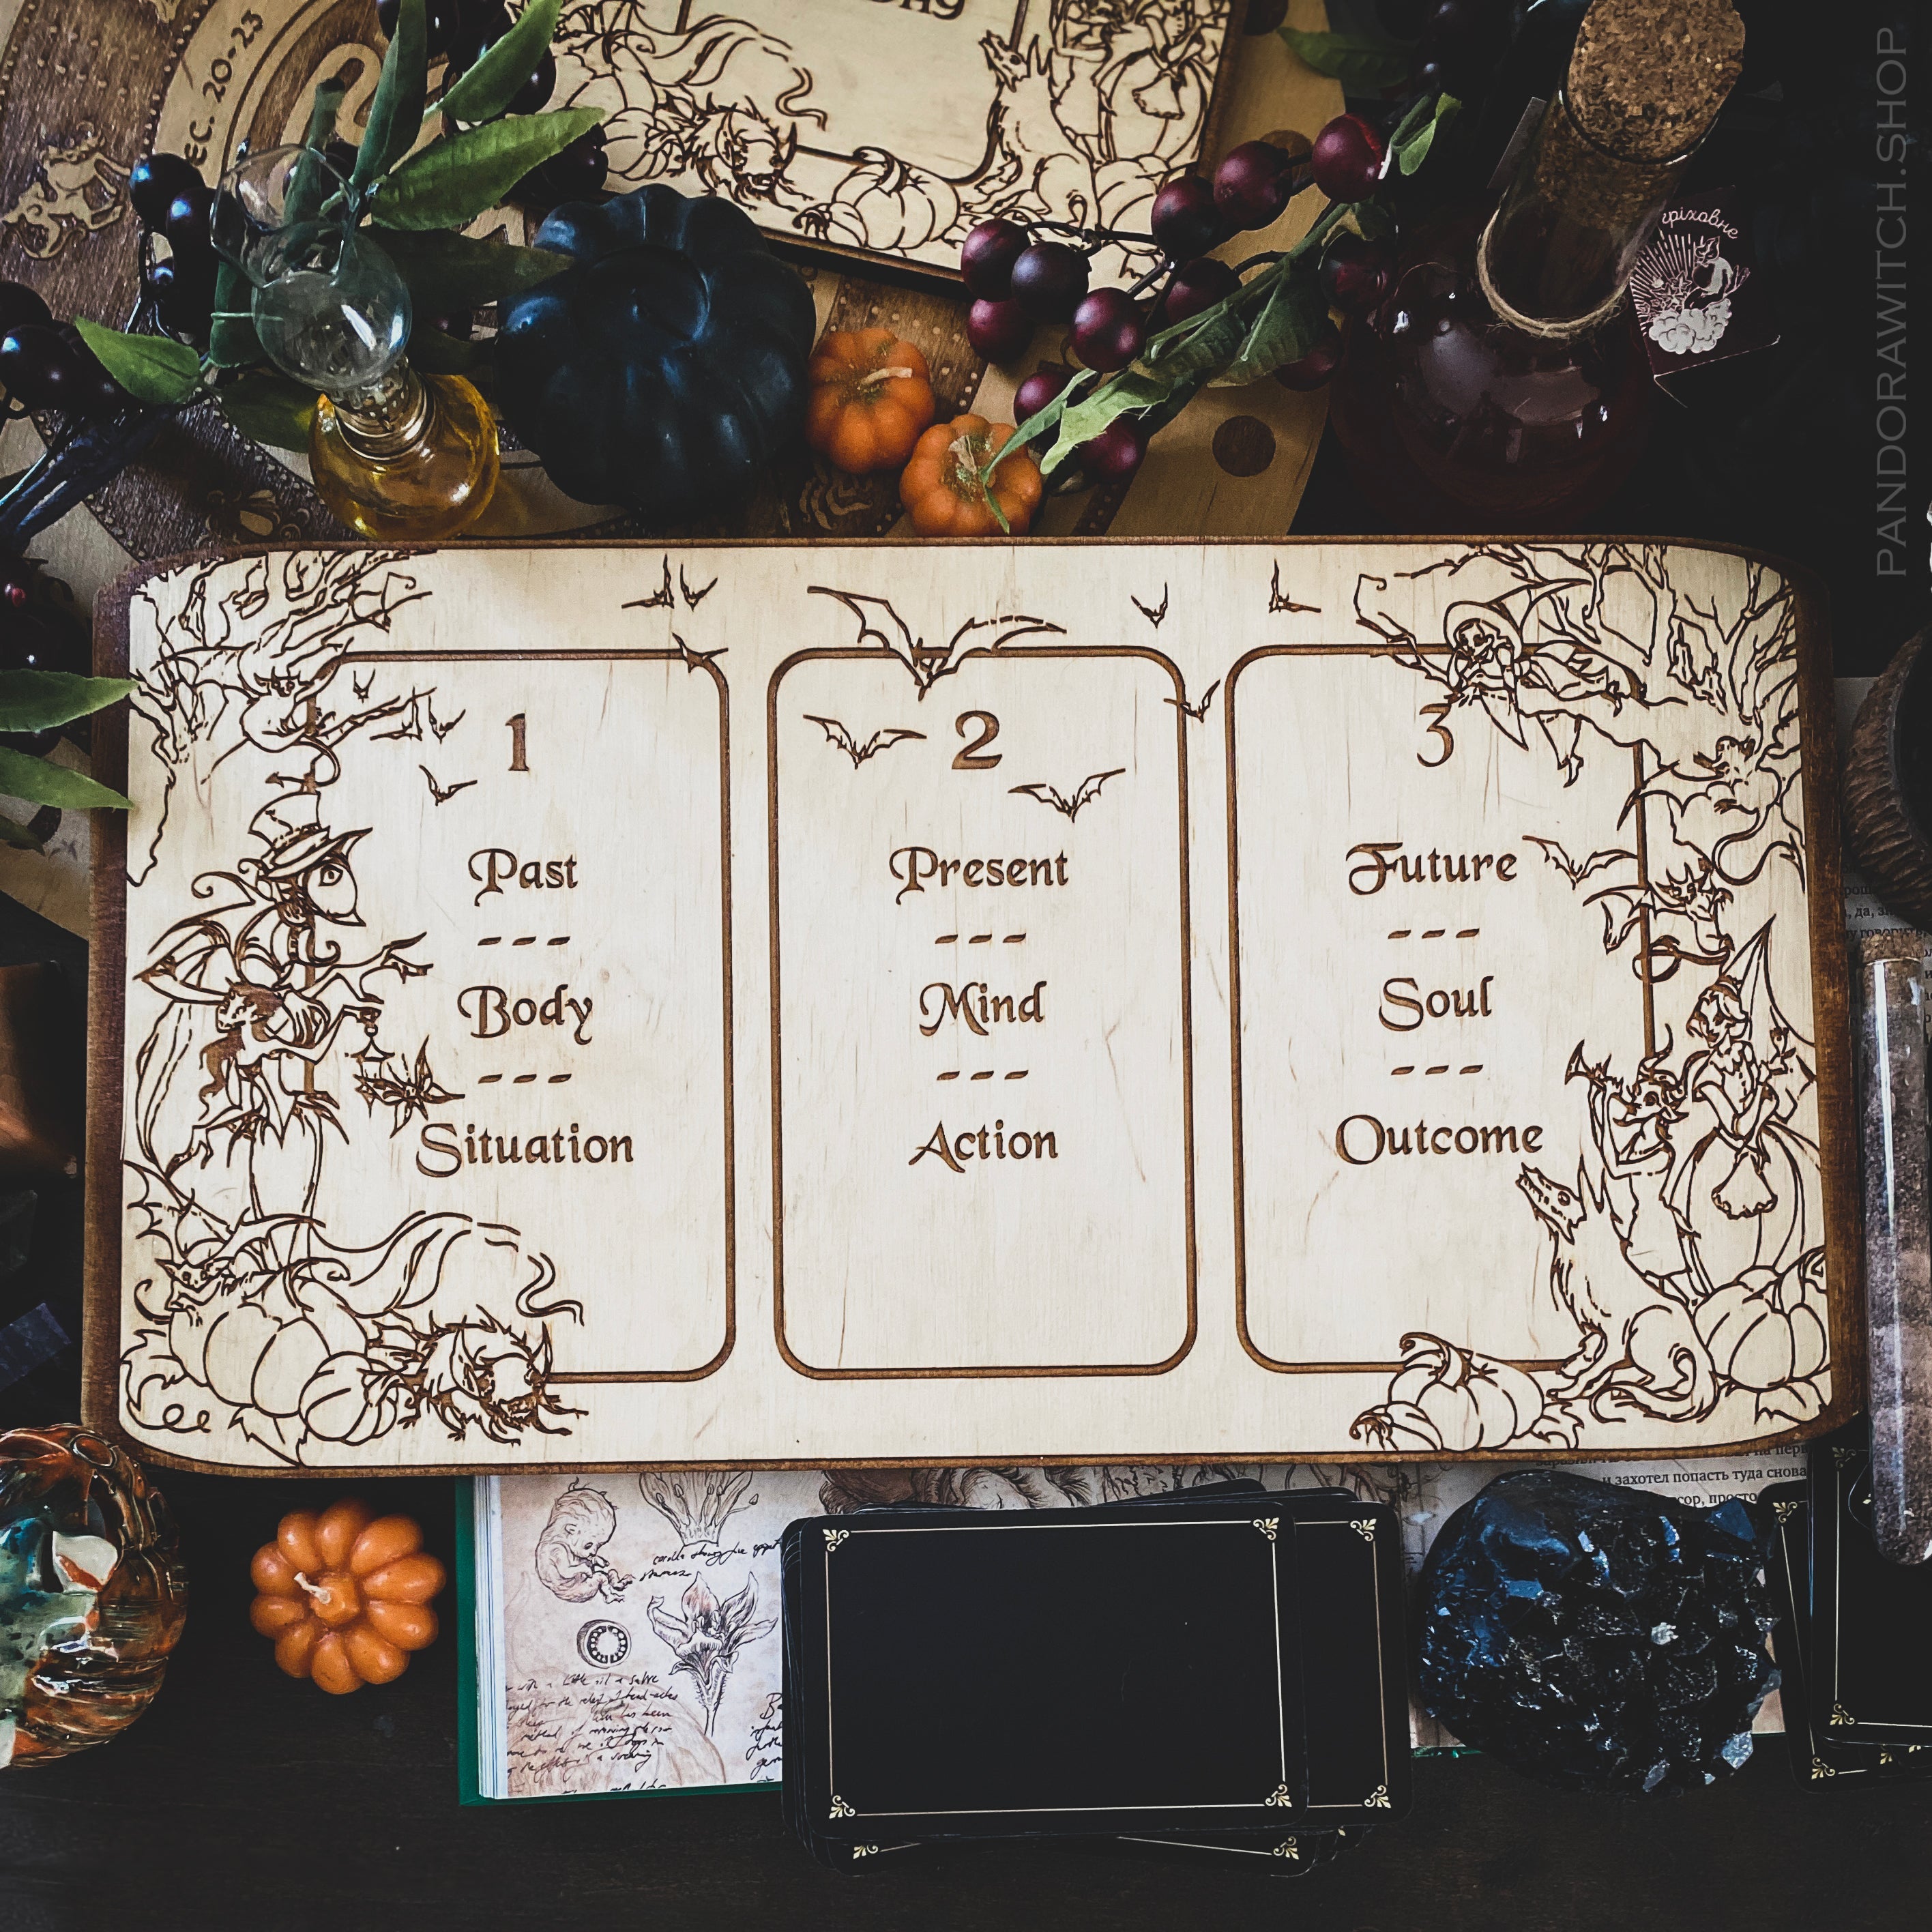 DEC. 20-23
PANDORAWITCH.SHOP
1
Past
---
Body
---
Situation
2
Present
---
Mind
---
Action
3
Future
---
Soul
---
Outcome
и захотел попасть туда снова